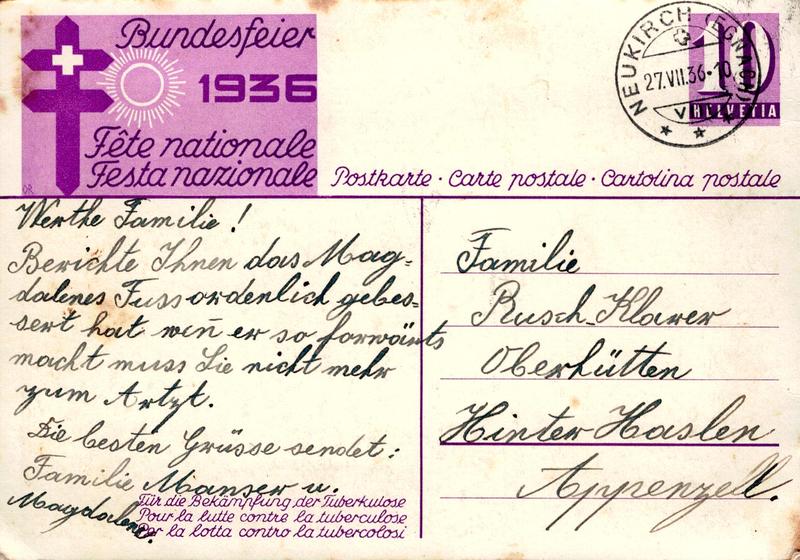 Bundesfeier
1936
Fête nationale
Festa nazionale
NEUKIRCH (EGNACH)
27.VII.36-10
VII
10
HELVETIA
Postkarte · Carte postale · Cartolina postale
Werthe Familie!
Berichte Ihnen das Mag=
dalenes Fuss ordenlich gebes=
sert hat weñ er so forwärts
macht muss Sie nicht mehr
zum Artzt.
Die besten Grüsse sendet:
Familie Manser u.
Magdalena.
Für die Bekämpfung der Tuberkulose
Pour la lutte contre la tuberculose
Per la lotta contro la tubercolosi
Familie
Rusch-Klarer
Oberhütten
Hinter Haslen
Appenzell.